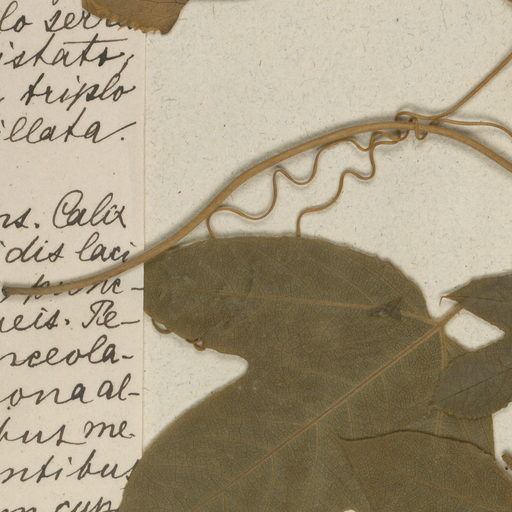 lo serra
istato,
triplo
illata.
ns. Calix
idis laci
punc-
neis. Pe-
nceola-
ona al-
bus me
ntibus
cup